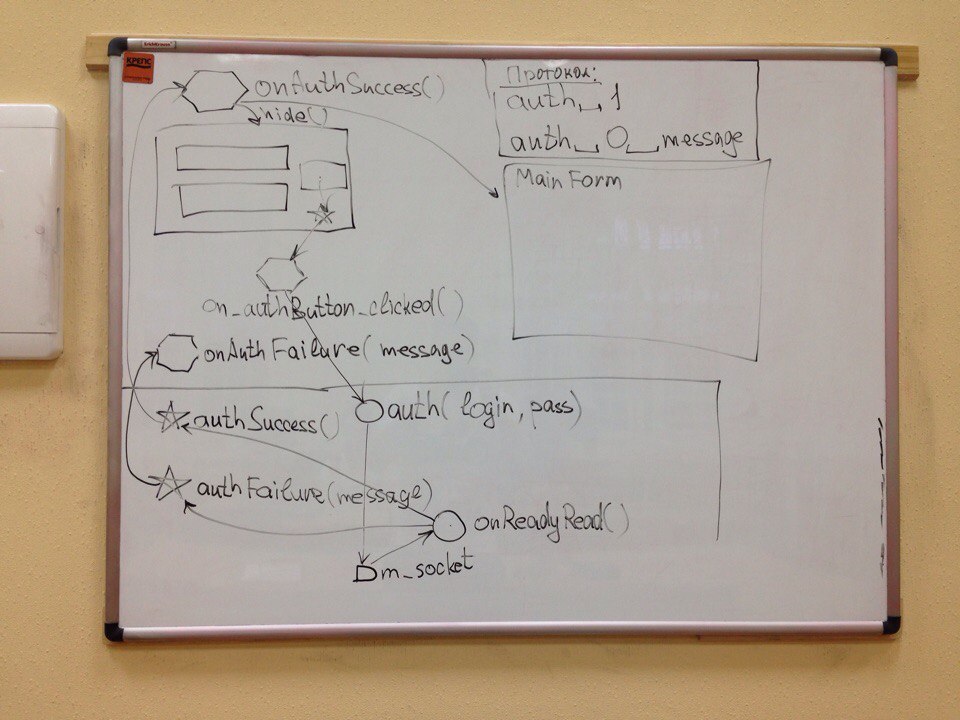 КРЕПС
onAuthSuccess()
hide()
Протокол:
auth␣1
auth␣0␣message
Main Form
on_authButton_clicked()
onAuthFailure(message)
auth(login, pass)
authSuccess()
authFailure(message)
onReadyRead()
m_socket